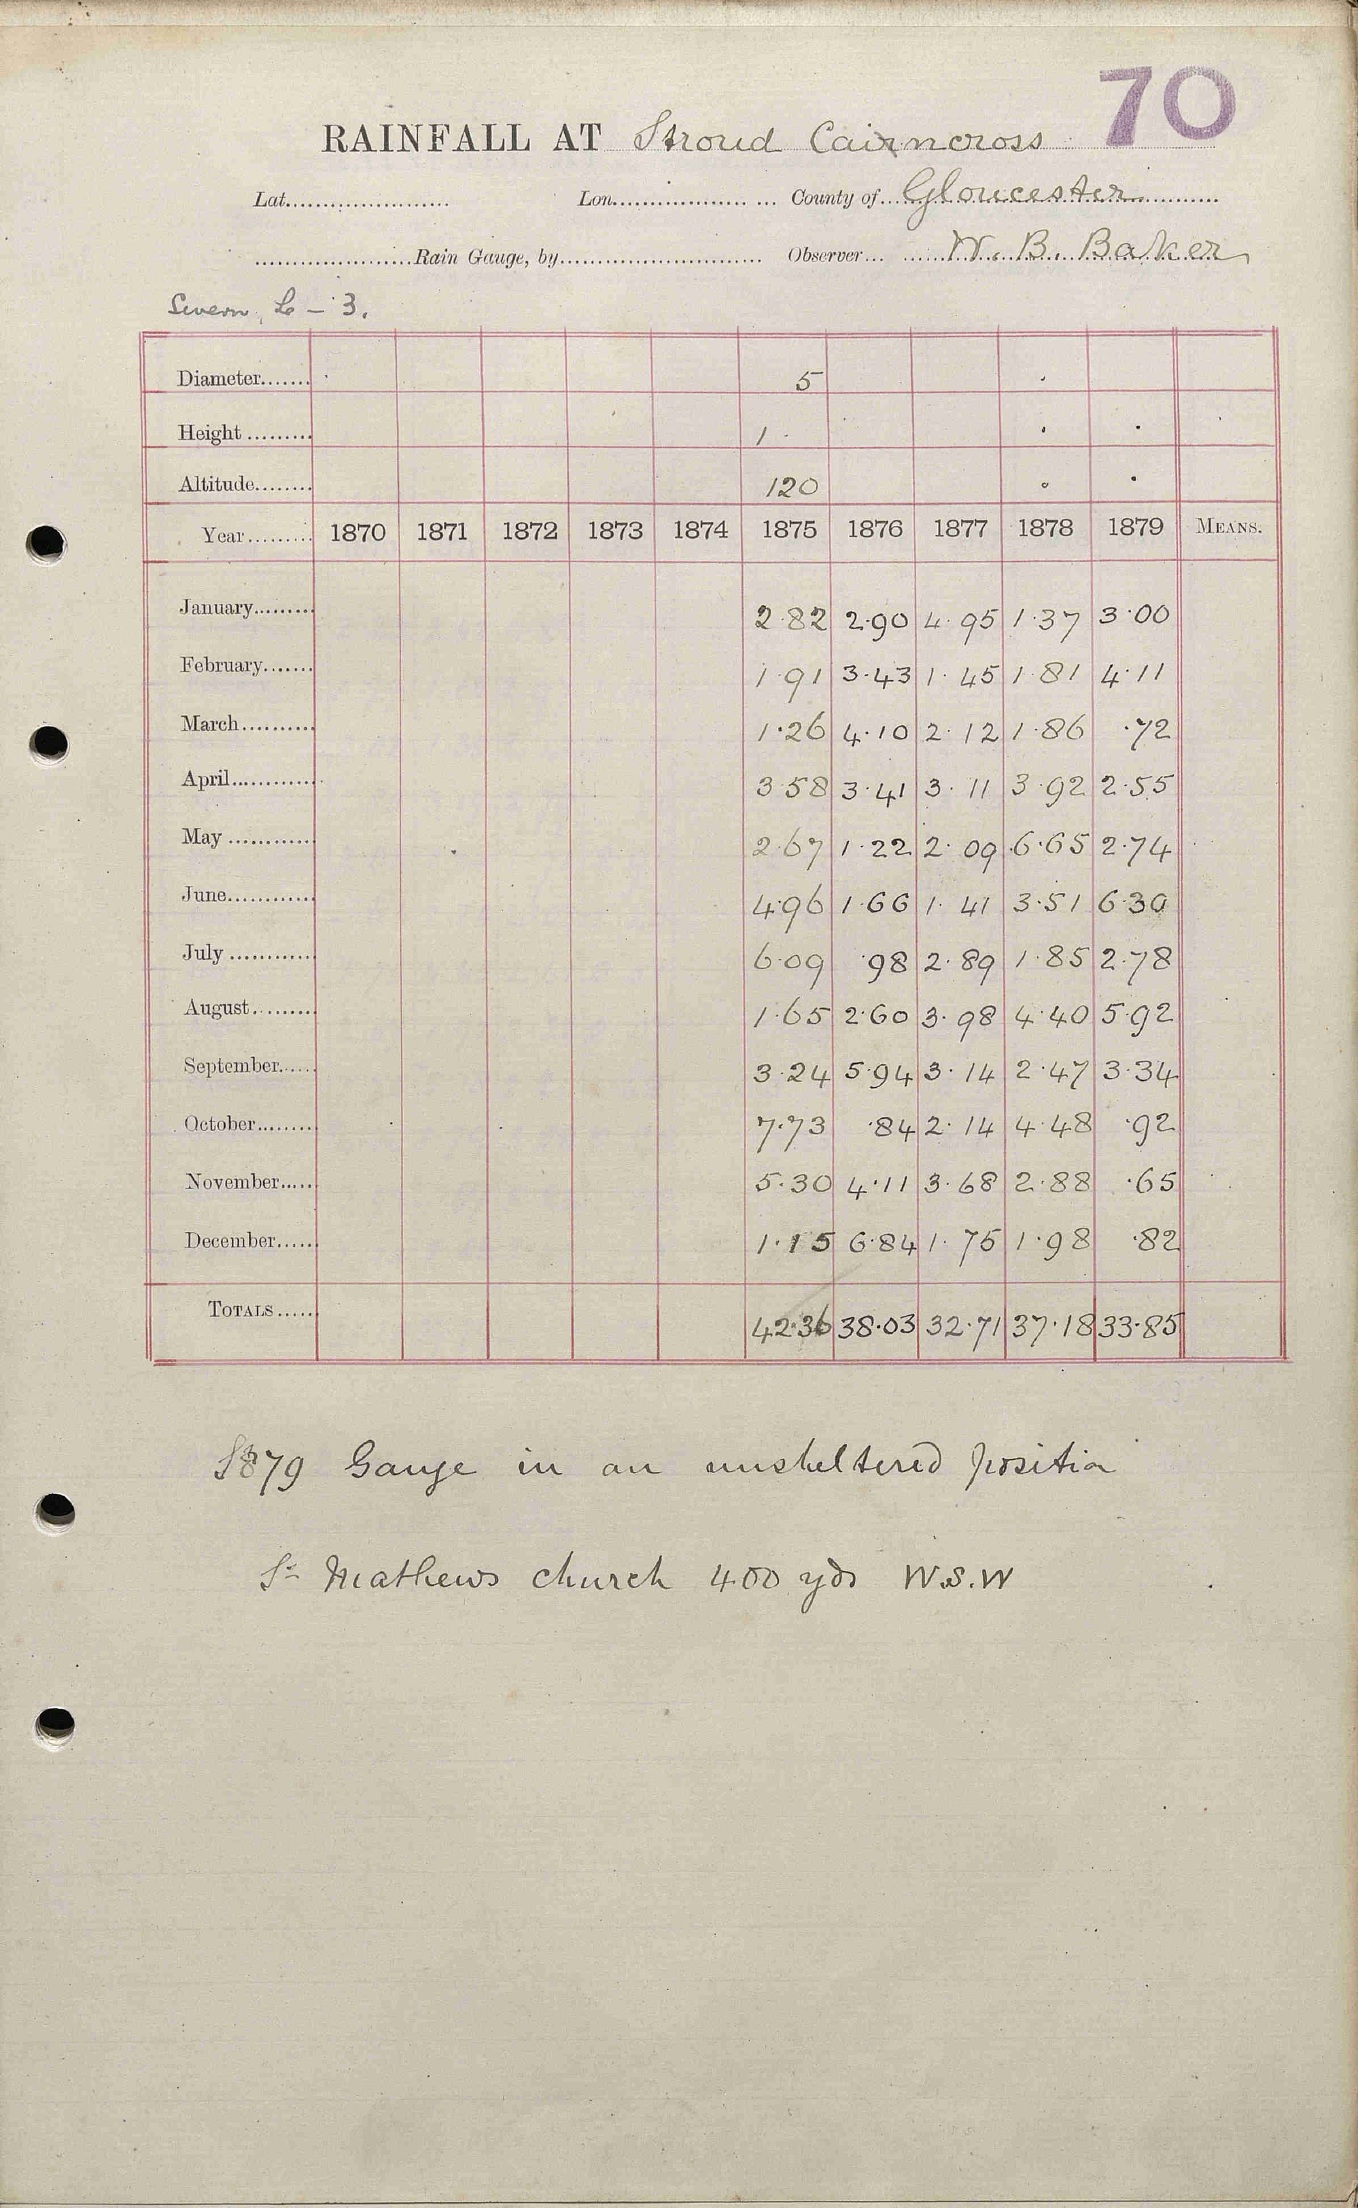 70
RAINFALL AT Stroud Cairncross
Lat. Lon. County of Gloucester
Rain Gauge, by Observer W. B. Baker
Severn, L - 3.
Diameter 5
Height 1
Altitude 120
Year 1870 1871 1872 1873 1874 1875 1876 1877 1878 1879 MEANS.
January 2.82 2.90 4.95 1.37 3.00
February 1.91 3.43 1.45 1.81 4.11
March 1.26 4.10 2.12 1.86 .72
April 3.58 3.41 3.11 3.92 2.55
May 2.67 1.22 2.09 6.65 2.74
June 4.96 1.66 1.41 3.51 6.30
July 6.09 .98 2.89 1.85 2.78
August 1.65 2.60 3.98 4.40 5.92
September 3.24 5.94 3.14 2.47 3.34
October 7.73 .84 2.14 4.48 .92
November 5.30 4.11 3.68 2.88 .65
December 1.15 6.84 1.75 1.98 .82
TOTALS 42.36 38.03 32.71 37.18 33.85
1879 Gauge in an unsheltered position
St Mathews church 400 yds W.S.W